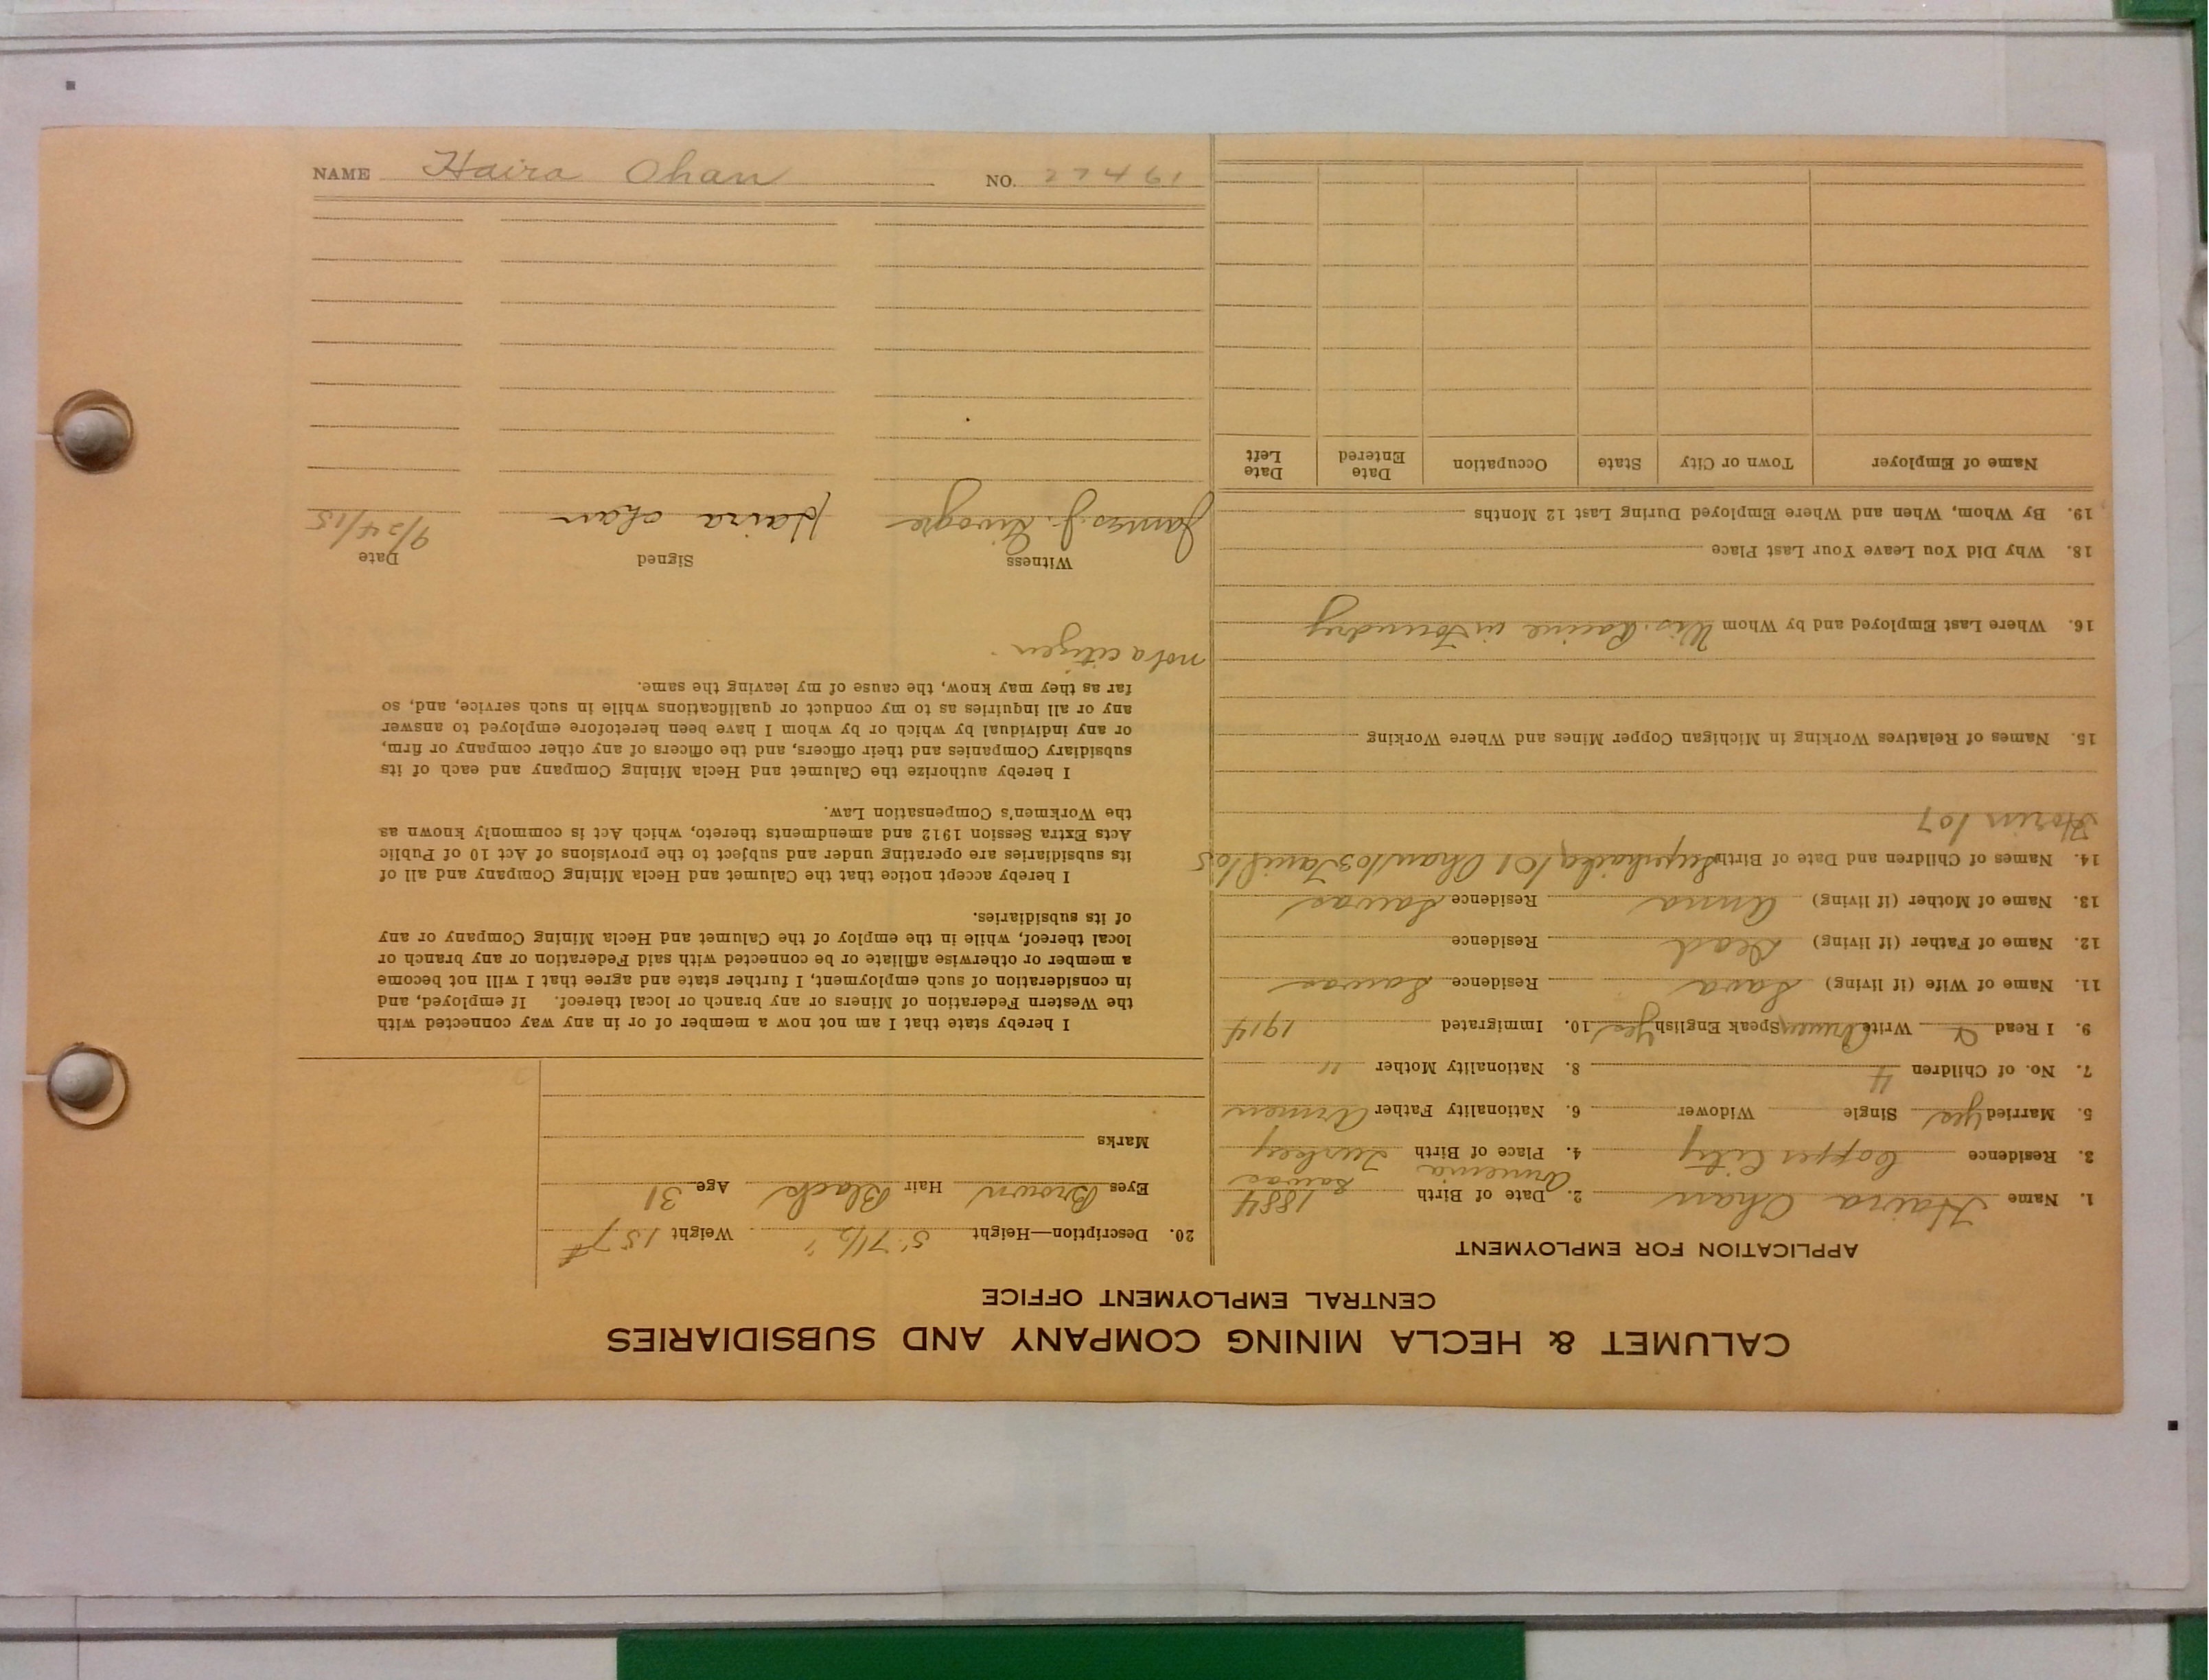 CALUMET & HECLA MINING COMPANY AND SUBSIDIARIES
CENTRAL EMPLOYMENT OFFICE
APPLICATION FOR EMPLOYMENT
1. Name Haira Ohan 2. Date of Birth 1884
Armenia Sawas
3. Residence Copper City 4. Place of Birth Turkey
5. Married yes Single Widower 6. Nationality Father Armen
7. No. of Children 4 8. Nationality Mother "
9. I Read Write Armen Speak English yes 10. Immigrated 1914
11. Name of Wife (if living) Sara Residence Sawas
12. Name of Father (if living) Dead Residence
13. Name of Mother (if living) Anna Residence Sawas
14. Names of Children and Date of Birth /01 Ohan/03 /05
/07
15. Names of Relatives Working in Michigan Copper Mines and Where Working
16. Where Last Employed and by Whom Wis. Racine in Foundry
18. Why Did You Leave Your Last Place
19. By Whom, When and Where Employed During Last 12 Months
Name of Employer Town or City State Occupation Date Entered Date Left
20. Description—Height 5' 7 1/2" Weight 157#
Eyes Brown Hair Black Age 31
Marks
I hereby state that I am not now a member of or in any way connected with
the Western Federation of Miners or any branch or local thereof. If employed, and
in consideration of such employment, I further state and agree that I will not become
a member or otherwise affiliate or be connected with said Federation or any branch or
local thereof, while in the employ of the Calumet and Hecla Mining Company or any
of its subsidiaries.
I hereby accept notice that the Calumet and Hecla Mining Company and all of
its subsidiaries are operating under and subject to the provisions of Act 10 of Public
Acts Extra Session 1912 and amendments thereto, which Act is commonly known as
the Workmen's Compensation Law.
I hereby authorize the Calumet and Hecla Mining Company and each of its
subsidiary Companies and their officers, and the officers of any other company or firm,
or any individual by which or by whom I have been heretofore employed to answer
any or all inquiries as to my conduct or qualifications while in such service, and, so
far as they may know, the cause of my leaving the same.
not a citizen.
Witness Signed Date
James J. Haira Ohan 9/24/15
NAME Haira Ohan NO.